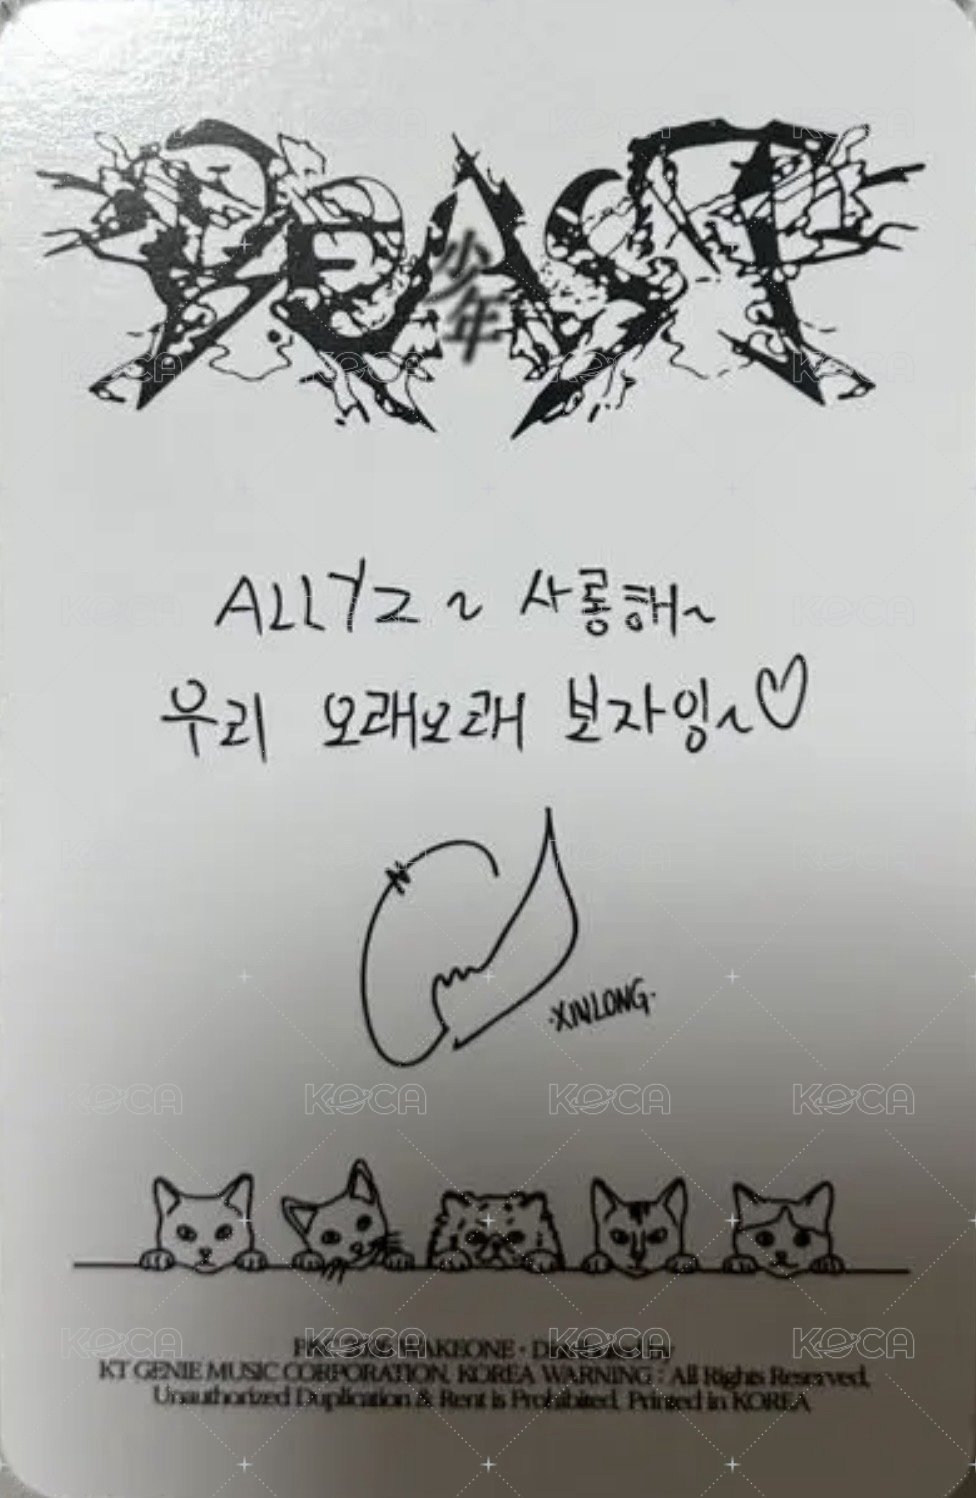 BEAST
少年
ALLYZ ~ 사롱해~
우리 오래오래 보자잉~♡
·XINLONG·
WAKEONE · Distributed by
KT GENIE MUSIC CORPORATION, KOREA WARNING : All Rights Reserved,
Unauthorized Duplication & Rent is Prohibited, Printed in KOREA
KOCA